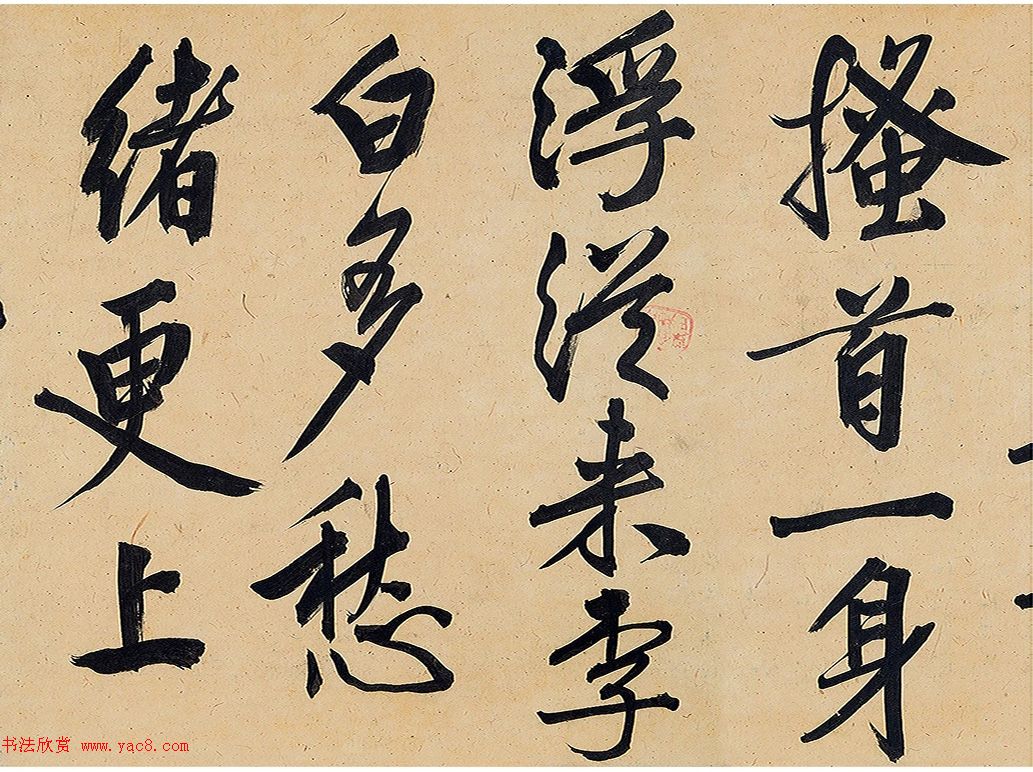 搔首一身
浮從来李
白多愁
緒更上
书法欣赏 www.yac8.com